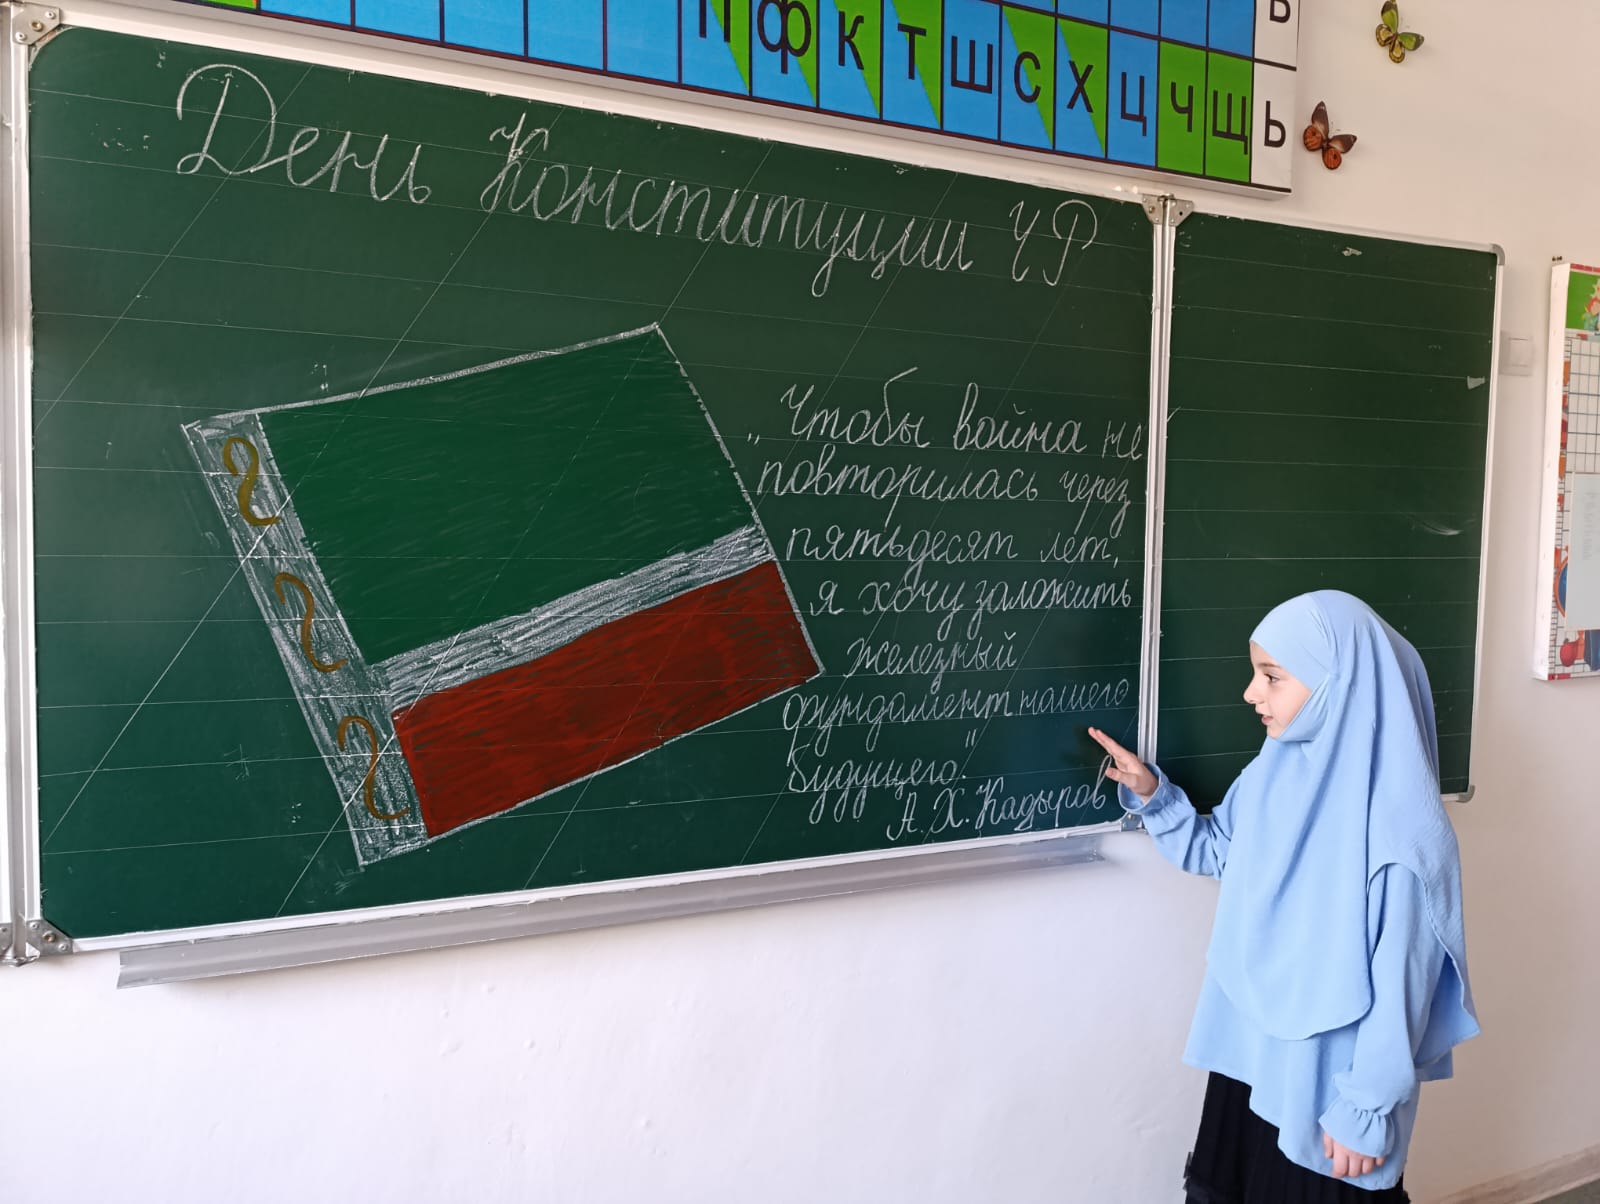 П Ф К Т Ш С Х Ц Ч Щ Ь
День Конституции ЧР
„Чтобы война не
повторилась через
пятьдесят лет,
я хочу заложить
железный
фундамент нашего
будущего."
А.Х.Кадыров